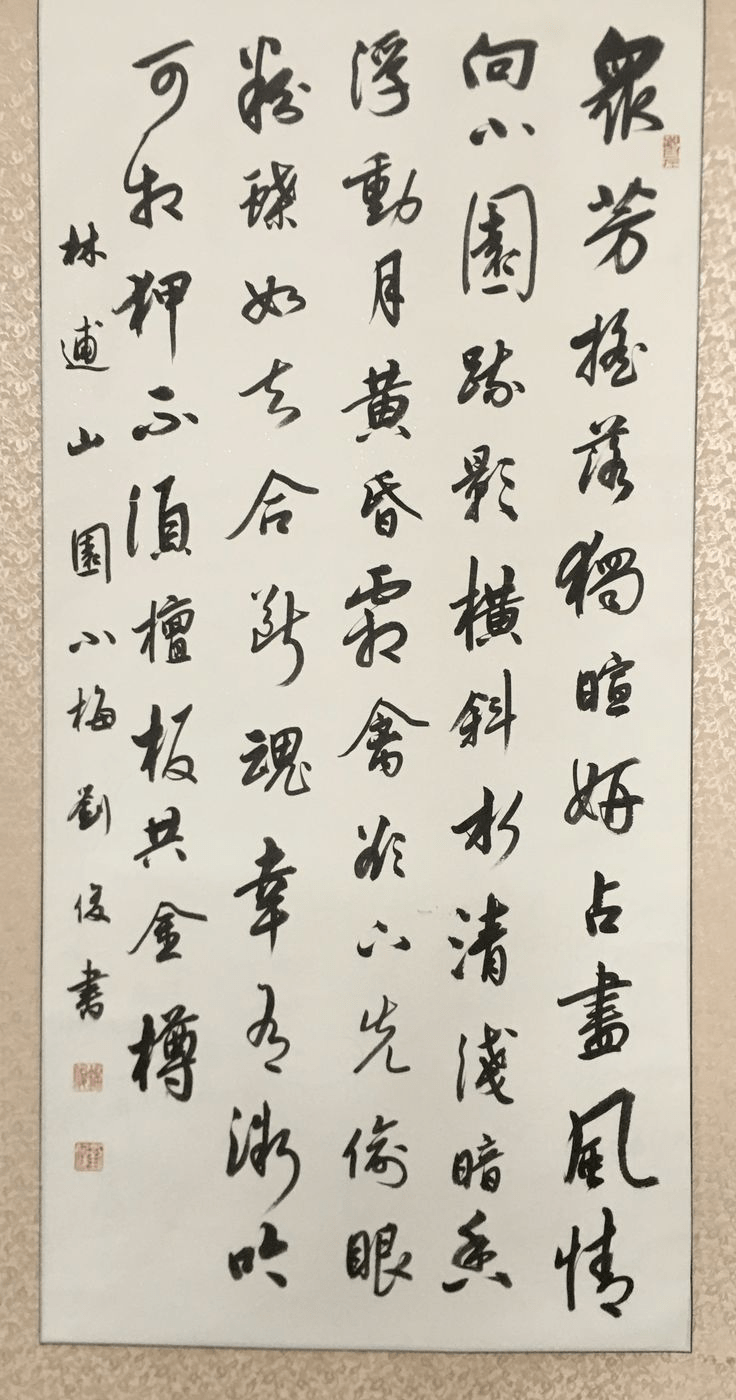 眾芳搖落獨暄妍占盡風情
向小園疏影橫斜水清淺暗香
浮動月黃昏霜禽欲下先偷眼
粉蝶如知合斷魂幸有微吟
可相狎不須檀板共金樽
林逋山園小梅劉俊書